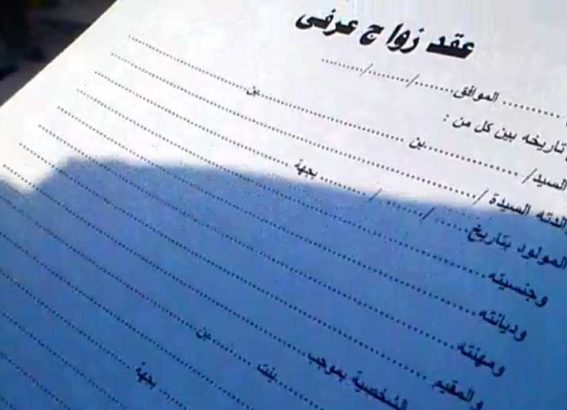 عقد زواج عرفى
الموافق ....../......../........
تاريخه بين كل من :
السيد/ ................ بن ................ بن ................
والدته السيدة / ................
المولود بتاريخ ....../ ....../ ........ بجهة ................
وجنسيته ................
وديانته ................
ومهنته ................
والمقيم ................
الشخصية بموجب ................
بنت ................ بن ................
بجهة ................